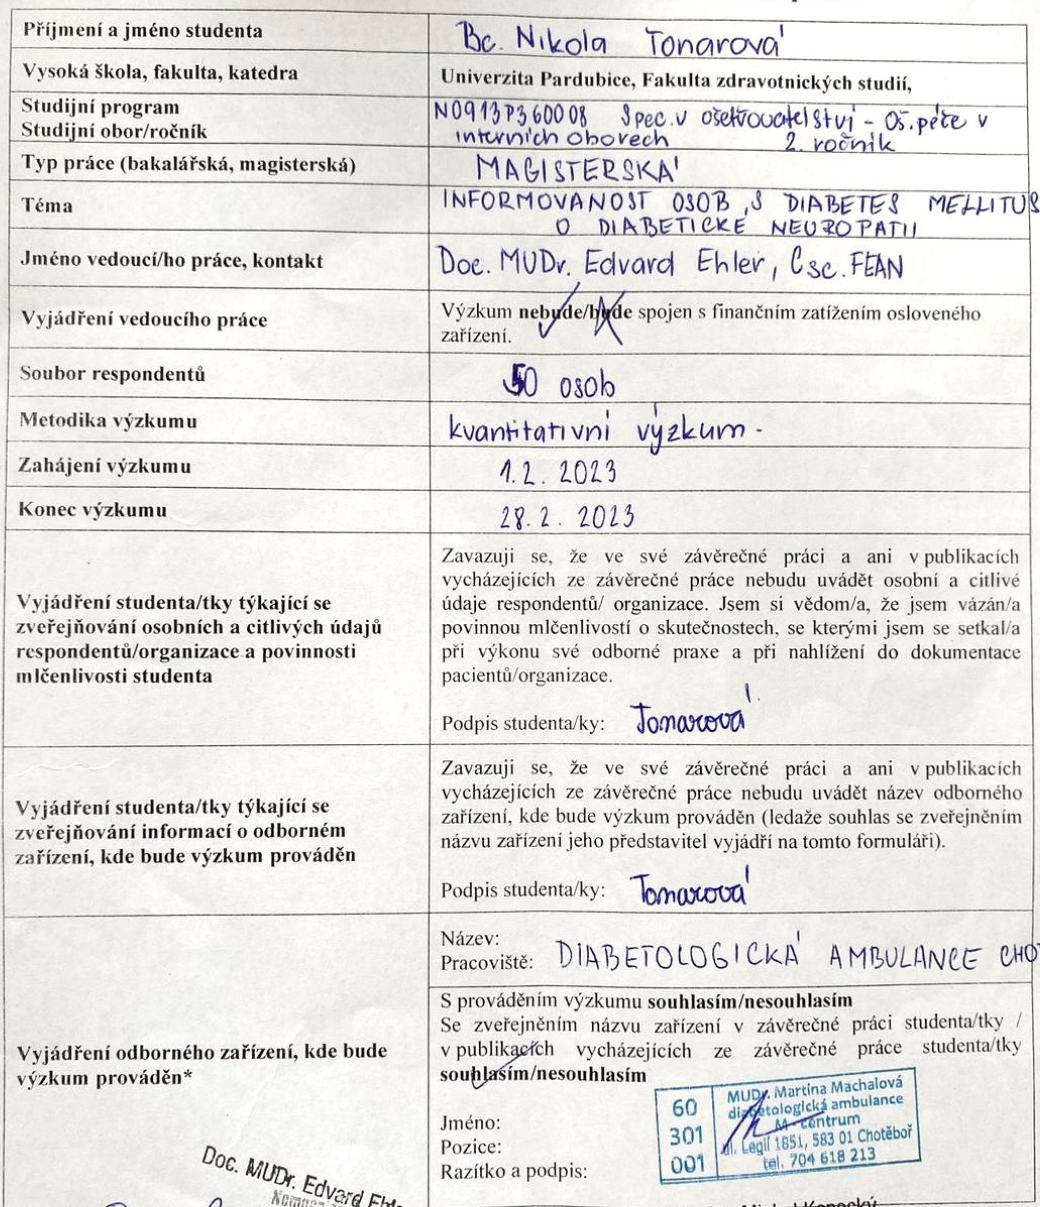 Příjmení a jméno studenta
Bc. Nikola Tonarová
Vysoká škola, fakulta, katedra
Univerzita Pardubice, Fakulta zdravotnických studií,
Studijní program
Studijní obor/ročník
N0913P360008 Spec. v ošetřovatelství - Oš. péče v
interních oborech 2. ročník
Typ práce (bakalářská, magisterská)
MAGISTERSKÁ
Téma
INFORMOVANOST OSOB S DIABETES MELLITUS
O DIABETICKÉ NEUROPATII
Jméno vedoucí/ho práce, kontakt
Doc. MUDr. Edvard Ehler, Csc. FEAN
Vyjádření vedoucího práce
Výzkum nebude/bude spojen s finančním zatížením osloveného
zařízení.
Soubor respondentů
50 osob
Metodika výzkumu
kvantitativní výzkum.
Zahájení výzkumu
1.2. 2023
Konec výzkumu
28.2. 2023
Vyjádření studenta/tky týkající se
zveřejňování osobních a citlivých údajů
respondentů/organizace a povinnosti
mlčenlivosti studenta
Zavazuji se, že ve své závěrečné práci a ani v publikacích
vycházejících ze závěrečné práce nebudu uvádět osobní a citlivé
údaje respondentů/ organizace. Jsem si vědom/a, že jsem vázán/a
povinnou mlčenlivostí o skutečnostech, se kterými jsem se setkal/a
při výkonu své odborné praxe a při nahlížení do dokumentace
pacientů/organizace.
Podpis studenta/ky: Tonarová
Vyjádření studenta/tky týkající se
zveřejňování informací o odborném
zařízení, kde bude výzkum prováděn
Zavazuji se, že ve své závěrečné práci a ani v publikacích
vycházejících ze závěrečné práce nebudu uvádět název odborného
zařízení, kde bude výzkum prováděn (ledaže souhlas se zveřejněním
názvu zařízení jeho představitel vyjádří na tomto formuláři).
Podpis studenta/ky: Tonarová
Vyjádření odborného zařízení, kde bude
výzkum prováděn*
Název:
Pracoviště: DIABETOLOGICKÁ AMBULANCE CHOT
S prováděním výzkumu souhlasím/nesouhlasím
Se zveřejněním názvu zařízení v závěrečné práci studenta/tky /
v publikacích vycházejících ze závěrečné práce studenta/tky
souhlasím/nesouhlasím
Jméno:
Pozice:
Razítko a podpis:
60
301
001
MUDr. Martina Machalová
diabetologická ambulance
M - centrum
ul. Legií 1851, 583 01 Chotěboř
tel. 704 618 213
Doc. MUDr. Edvard Ehle